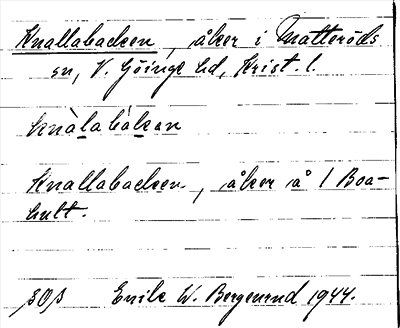 Knallabacken, åker i Matteröds
sn, V. Göinge hd, Krist. l.
knàlabàkan
Knallabacken, åker å 1 Boa-
hult.
Erik W. Bergenrud 1944.